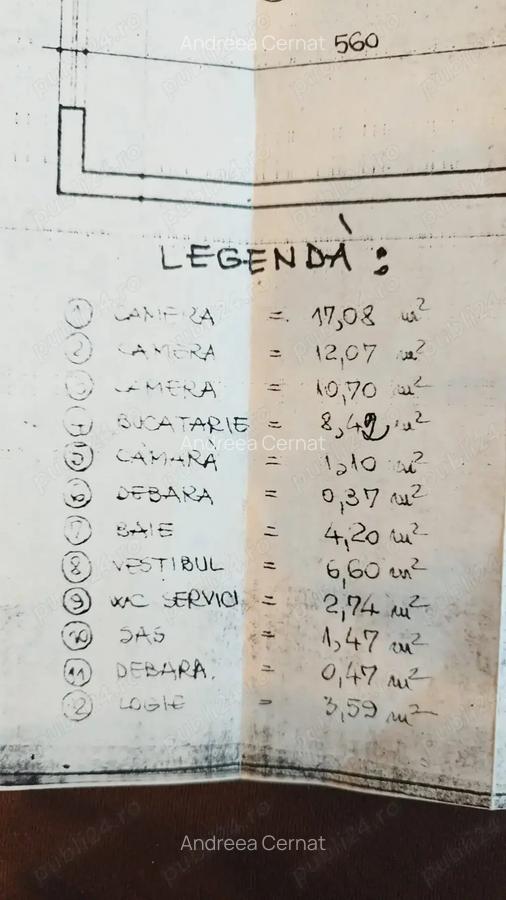 Andreea Cernat
560
LEGENDĂ :
1 CAMERA = 17,08 m²
2 CAMERA = 12,07 m²
3 CAMERA = 10,70 m²
4 BUCATARIE = 8,42 m²
Andreea Cernat
5 CĂMARĂ = 1,10 m²
6 DEBARA = 0,37 m²
7 BAIE = 4,20 m²
8 VESTIBUL = 6,60 m²
9 WC SERVICI = 2,74 m²
10 SAS = 1,47 m²
11 DEBARA. = 0,47 m²
12 LOGIE = 3,59 m²
Andreea Cernat
publi24.ro